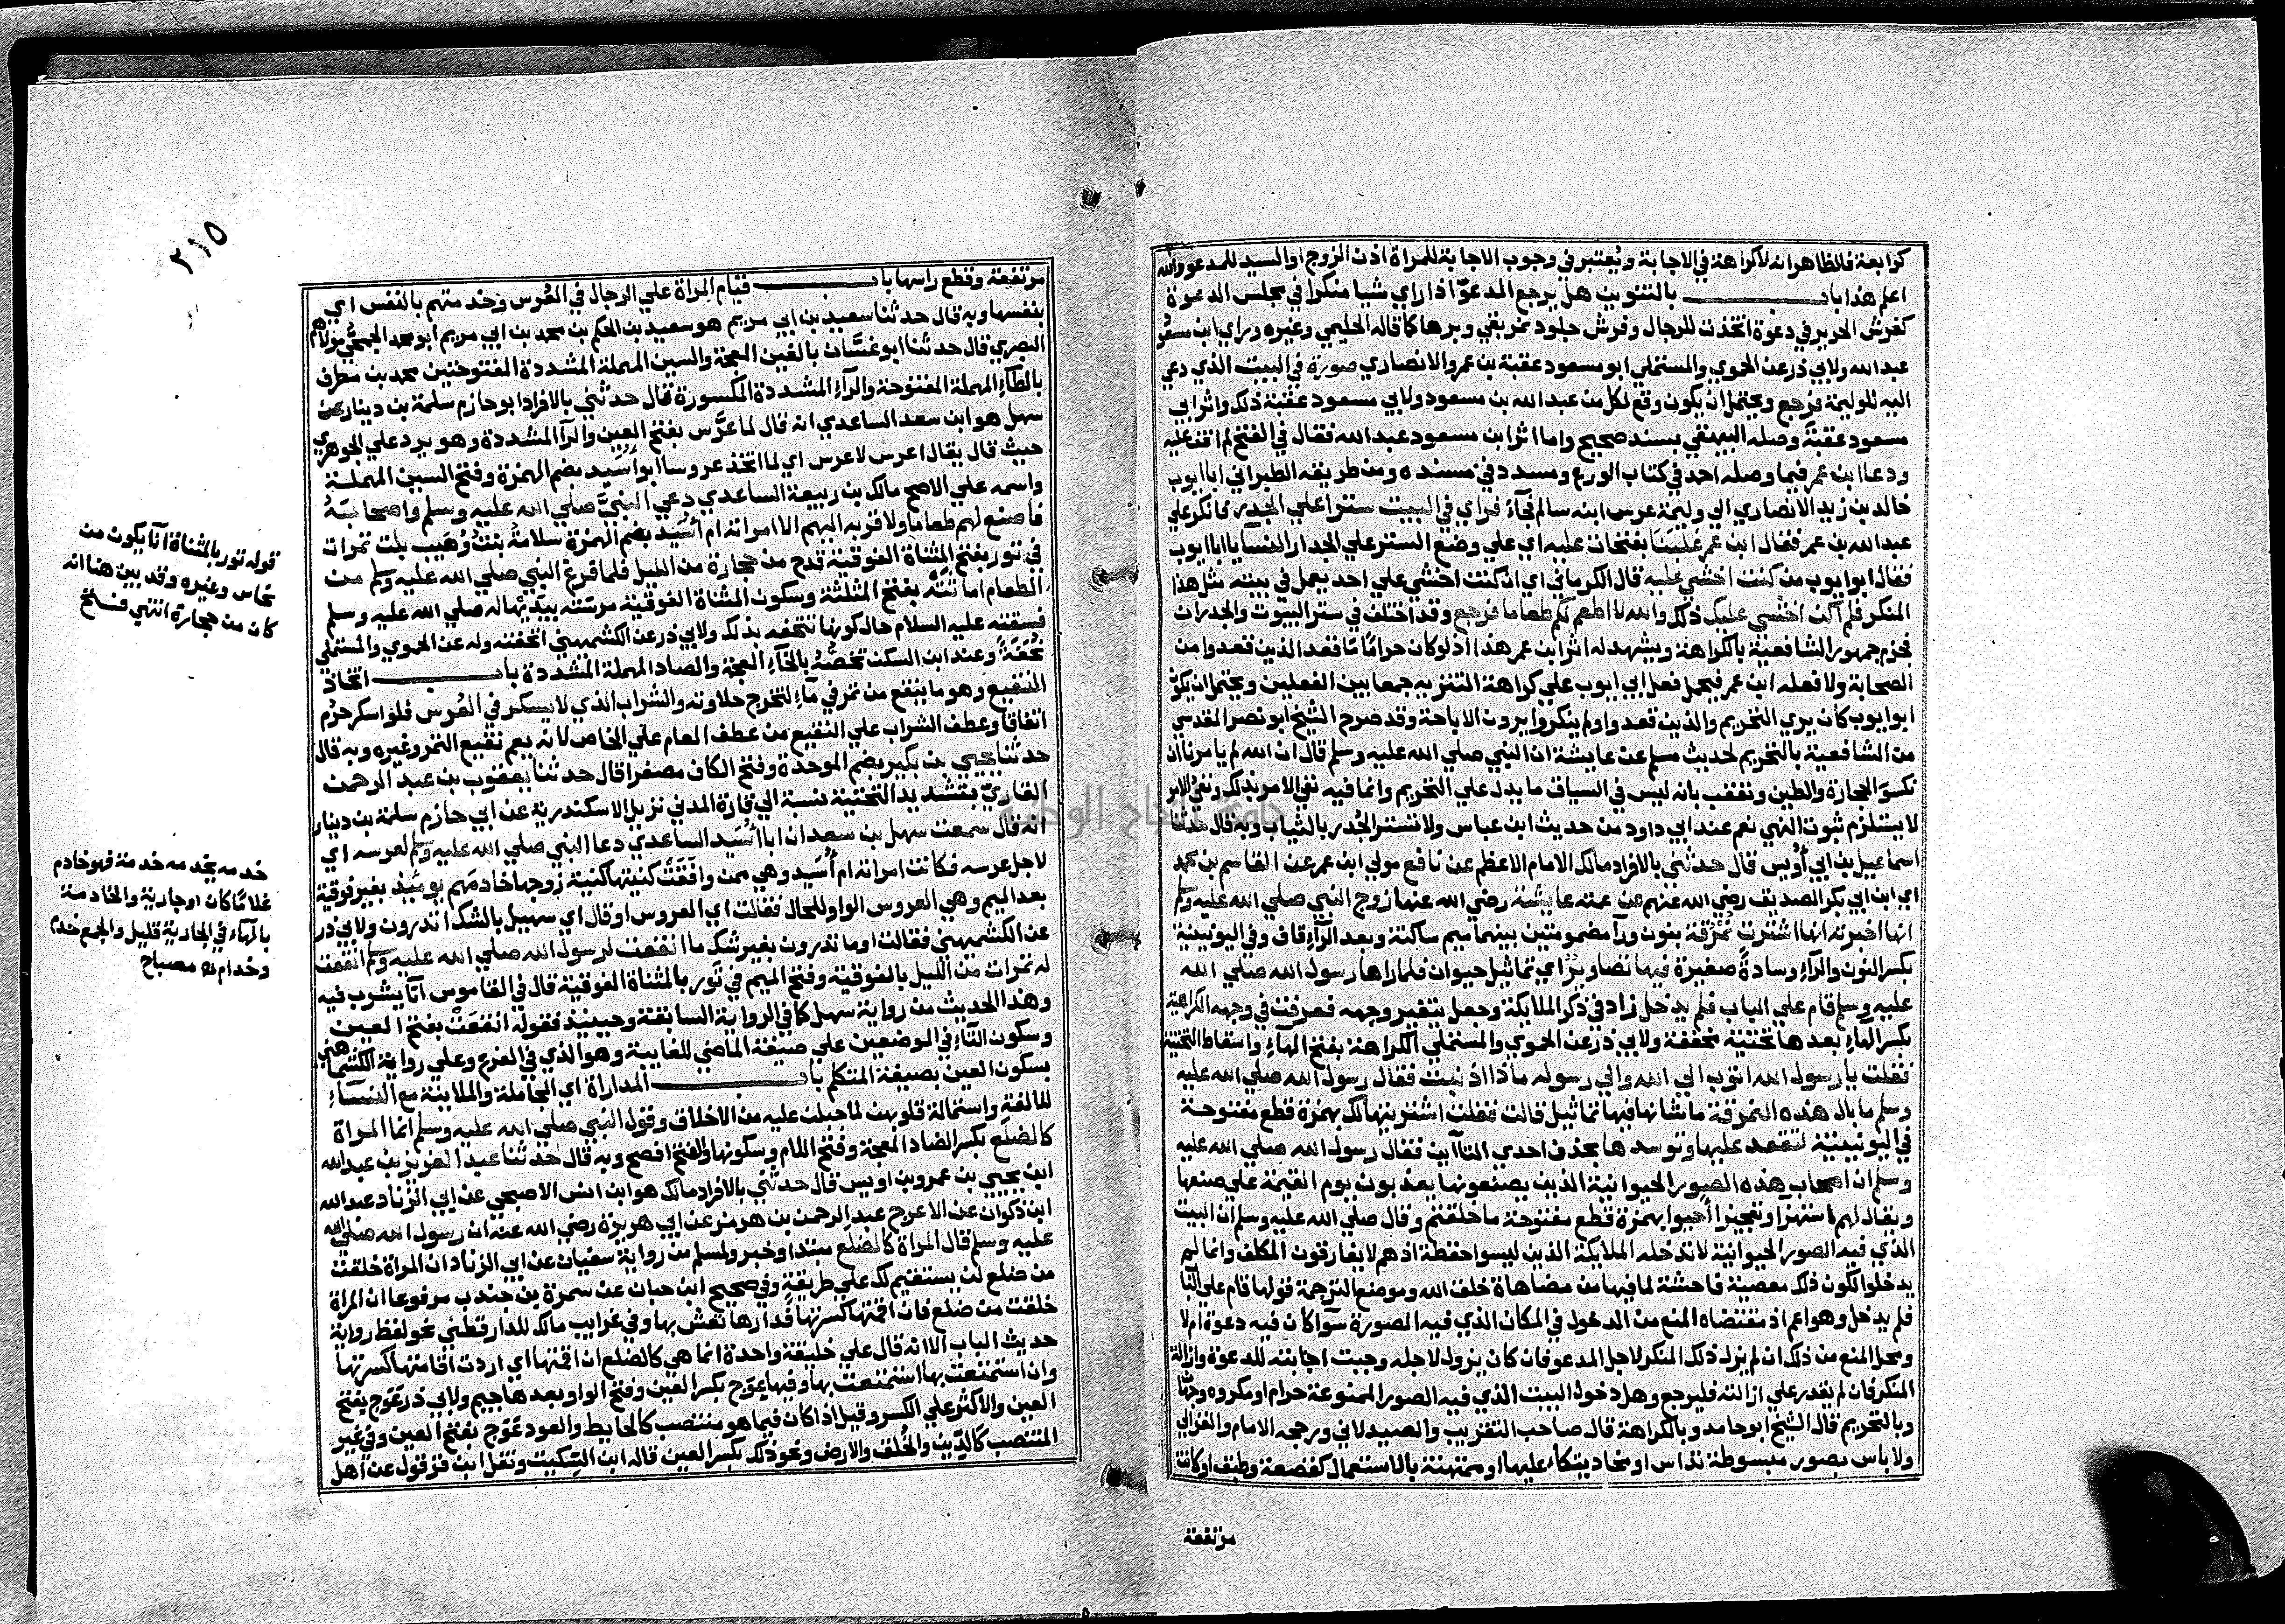 كرابعة فالظاهر انه لا كراهة في الاجابة ويُعتبر في وجوب الاجابة للمراة اذن الزوج او السيد للمدعو والله
اعلم هذا باب بالتنوين هل يرجع المدعوّ اذا راي شيا منكرا في مجلس الدعوة
كفرش الحرير في دعوة اتخذت للرجال وفرش جلود نمر بقي وبرها كما قاله الحليمي وغيره وراي ابن مسعود
عبد الله ولابي ذر عن الحموي والمستملي ابو مسعود عقبة بن عمرو الانصاري صورة في البيت الذي دعي
اليه للوليمة فرجع ويحتمل ان يكون وقع لكل من عبد الله بن مسعود ولابي مسعود عقبة ذلك واثر ابي
مسعود عقبة وصله البيهقي بسند صحيح واما اثر ابن مسعود عبد الله فقال في الفتح لم اقف عليه
ودعا ابن عمر فيما وصله احمد في كتاب الورع ومسدد في مسنده ومن طريقه الطبراني ابا ايوب
خالد بن زيد الانصاري الي وليمة عرس ابنه سالم فجآء فراي في البيت سترا علي الجدر فانكر علي
عبد الله بن عمر فقال ابن عمر غلبنا بفتحات عليه اي علي وضع الستر علي الجدار النسا يا ابا ايوب
فقال ابو ايوب من كنت اخشي عليه قال الكرماني اي ان كنت اخشي علي احد يعمل في بيته مثل هذا
المنكر فلم اكن اخشي عليك ذلك والله لا اطعم لكم طعاما فرجع وقد اختلف في ستر البيوت والجدرات
فجزم جمهور الشافعية بالكراهة ويشهد له اثر ابن عمر هذا اذ لو كان حراما ما قعد الذين قعدوا من
الصحابة ولا فعله ابن عمر فيحمل فعل ابي ايوب علي كراهة التنزيه جمعا بين الفعلين ويحتمل ان يكون
ابو ايوب كان يري التحريم والذين قعدوا ولم ينكروا يرون الاباحة وقد صرح الشيخ ابو نصر المقدسي
من الشافعية بالتحريم لحديث مسلم عن عايشة ان النبي صلي الله عليه وسلم قال ان الله لم يامرنا ان
نكسو الحجارة والطين وتعقب بانه ليس في السياق ما يدل علي التحريم وانما فيه نفي الامر بذلك ونفي الامر
لا يستلزم ثبوت النهي نعم عند ابي داود من حديث ابن عباس ولا تستر الجُدر بالثياب وبه قال حدثنا
اسماعيل بن ابي أويس قال حدثني بالافراد مالك الامام الاعظم عن نافع مولي ابن عمر عن القاسم بن محمد
اي ابن ابي بكر الصديق رضي الله عنهم عن عمته عايشة رضي الله عنها زوج النبي صلي الله عليه وسلم
انها اخبرته انها اشترت نُمرُقة بنون ورآ مضمومتين بينهما ميم ساكنة وبعد الرآء قاف وفي اليونينية
بكسر النون والرآء وسادة صغيرة فيها تصاوير اي تماثيل حيوان فلما راها رسول الله صلي الله
عليه وسلم قام علي الباب فلم يدخل زاد في ذكر الملايكة وجعل يتغير وجهه فعرفت في وجهه الكراهية
بكسر الهاء بعدها تحتية مخففة ولابي ذر عن الحموي والمستملي الكراهة بفتح الهآء واسقاط التحتية
فقلت يا رسول الله اتوب الي الله والي رسوله ماذا اذنبت فقال رسول الله صلي الله عليه
وسلم ما بال هذه النمرقة ما شانها فيها تماثيل قالت فقلت اشتريتها لك بهمزة قطع مفتوحة
في اليونينية لتقعد عليها وتوسدها بحذف احدي التاآين فقال رسول الله صلي الله عليه
وسلم ان اصحاب هذه الصور الحيوانية الذين يصنعونها يعذبون يوم القيمة علي صنعها
ويقال لهم استهزا وتعجيزا أحيوا بهمزة قطع مفتوحة ما خلقتم وقال صلي الله عليه وسلم ان البيت
الذي فيه الصور الحيوانية لا تدخله الملايكة الذين ليسوا حفظة اذ هم لا يفارقون المكلف وانما لم
يدخلوا لكون ذلك معصية فاحشة لما فيها من مضاهاة خلق الله وموضع الترجمة قولها قام علي الباب
فلم يدخل وهو اعم اذ مقتضاه المنع من الدخول في المكان الذي فيه الصورة سوآ كان فيه دعوة ام لا
ومحل المنع من ذلك ان لم يزل ذلك المنكر لاجل المدعو فان كان يزول لاجله وجبت اجابته للدعوة وازالة
المنكر فان لم يقدر علي ازالته فليرجع وهل دخول البيت الذي فيه الصور الممنوعة حرام او مكروه وجهان
وبالتحريم قال الشيخ ابو حامد وبالكراهة قال صاحب التقريب والصيدلاني ورجحه الامام والغزالي
ولا باس بصور مبسوطة تداس او مخاد يتكأ عليها او ممتهنة بالاستعمال كقصعة وطبق او كانت
مرتفعة
مرتفعة وقطع راسها باب قيام المراة علي الرجال في العُرس وخدمتهم بالنفس اي
بنفسها وبه قال حدثنا سعيد بن ابي مريم هو سعيد بن الحكم بن محمد بن ابي مريم ابو محمد الجمحي مولاهم
البصري قال حدثنا ابو غسان بالغين المعجمة والسين المهملة المشددة المفتوحتين محمد بن مطرف
بالطآء المهملة المفتوحة والرآء المشددة المكسورة قال حدثني بالافراد ابو حازم سلمة بن دينار عن
سهل هو ابن سعد الساعدي انه قال لما عرّس بفتح العين والرآ المشددة وهو يرد علي الجوهري
حيث قال يقال اعرس لا عرس اي لما اتخذ عروسا ابو أسيد بضم الهمزة وفتح السين المهملة
واسمه علي الاصح مالك بن ربيعة الساعدي دعي النبي صلي الله عليه وسلم واصحابه
فما صنع لهم طعاما ولا قربه اليهم الا امراته ام أسيد بضم الهمزة سلامة بنت وُهيب بلت تمرات
في تور بفتح المثناة الفوقية قدح من حجارة من الليل فلما فرغ النبي صلي الله عليه وسلم من
الطعام اماثته بفتح المثلثة وسكون المثناة الفوقية مرسته بيديها له صلي الله عليه وسلم
فسقته عليه السلام حال كونها تتحفه بذلك ولابي ذر عن الكشميهني اتحفته وله عن الحموي والمستملي
تحفة وعند ابن السكن تخصه بالخآء المعجمة والصاد المهملة المشددة باب اتخاذ
النقيع وهو ما ينقع من تمر في مآء لتخرج حلاوته والشراب الذي لا يسكر في العُرس فلو اسكر حرم
اتفاقا وعطف الشراب علي النقيع من عطف العام علي الخاص لانه يعم نقيع التمر وغيره وبه قال
حدثنا يحيي بن بكير بضم الموحدة وفتح الكاف مصغرا قال حدثنا يعقوب بن عبد الرحمن
القاريّ بتشديد التحتية نسبة الي قارة المدني نزيل الاسكندرية عن ابي حازم سلمة بن دينار
انه قال سمعت سهل بن سعد ان ابا أُسَيد الساعدي دعا النبي صلي الله عليه وسلم لعرسه اي
لاجل عرسه فكانت امراته ام أسيد وهي ممن وافقت كنيتها كنية زوجها خادمهم يوميذ بغير فوقية
بعد الميم وهي العروس الواو للحال فقالت اي العروس او قال اي سهل بالشك اتدرون ولابي ذر
عن الكشميهني فقالت اوما تدرون بغير شك ما انقعت لرسول الله صلي الله عليه وسلم انقعت
له تمرات من الليل بالفوقية وفتح الميم في تور بالمثناة الفوقية قال في القاموس انآ يشرب فيه
وهذا الحديث من رواية سهل كما في الرواية السابقة وحينيذ فقوله انقعت بفتح العين
وسكون التآء في الموضعين علي صيغة الماضي للغايبة وهو الذي في الفرع وعلي رواية الكشميهني
بسكون العين بصيغة المتكلم باب المداراة اي المجاملة والملاينة مع النسآء
للالفة واستمالة قلوبهن لما جبلت عليه من الاخلاق وقول النبي صلي الله عليه وسلم انما المراة
كالضلع بكسر الضاد المعجمة وفتح اللام وسكونها والفتح افصح وبه قال حدثنا عبد العزيز بن عبد الله
ابن يحيي بن عمرو بن اويس قال حدثني بالافراد مالك هو ابن انس الاصبحي عن ابي الزناد عبد الله
ابن ذكوان عن الاعرج عبد الرحمن بن هرمز عن ابي هريرة رضي الله عنه ان رسول الله صلي الله
عليه وسلم قال المراة كالضلع مبتدا وخبر ولمسلم من رواية سفيان عن ابي الزناد ان المراة خلقت
من ضلع لن يستقيم لك علي طريقة وفي صحيح ابن حبان عن سمرة بن جندب مرفوعا ان المراة
خلقت من ضلع فان اقمتها كسرتها فدارها تعش بها وفي غرايب مالك للدارقطني نحو لفظ رواية
حديث الباب الا انه قال علي خليقة واحدة انما هي كالضلع ان اقمتها اي اردت اقامتها كسرتها
وان استمتعت بها استمتعت بها وفيها عِوَج بكسر العين وفتح الواو بعدها جيم ولابي ذر عَوج بفتح
العين والاكثر علي الكسر وقيل اذا كان فيما هو منتصب كالحايط والعود عَوَج بفتح العين وفي غير
المنتصب كالدين والخُلق والارض ونحو ذلك بكسر العين قاله ابن السِّكيت ونقل ابن قرقول عن اهل
٢١٥
قوله تور بالمثناة انا يكون من
نحاس وغيره وقد بين هنا انه
كان من حجارة انتهي فتح
خدمه يخدمه خدمة فهو خادم
غلاما كان او جارية والخادمة
بالهاء في الجارية قليل والجمع خدم
وخدام اهـ مصباح
جامعة النجاح الوطنية